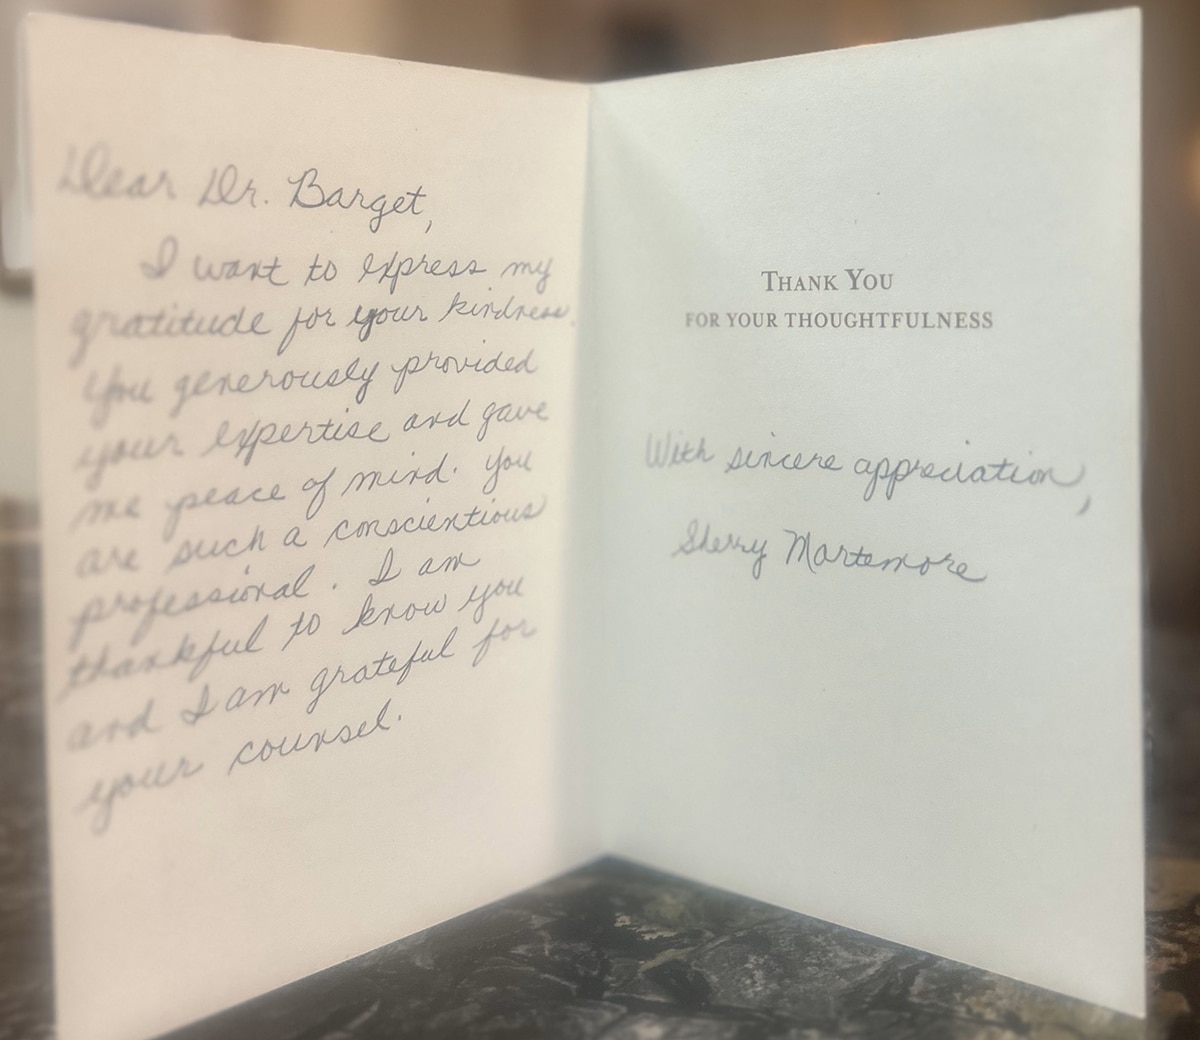 Dear Dr. Barget,
I want to express my
gratitude for your kindness.
You generously provided
your expertise and gave
me peace of mind. You
are such a conscientious
professional. I am
thankful to know you
and I am grateful for
your counsel.
THANK YOU
FOR YOUR THOUGHTFULNESS
With sincere appreciation,
Sherry Martemore